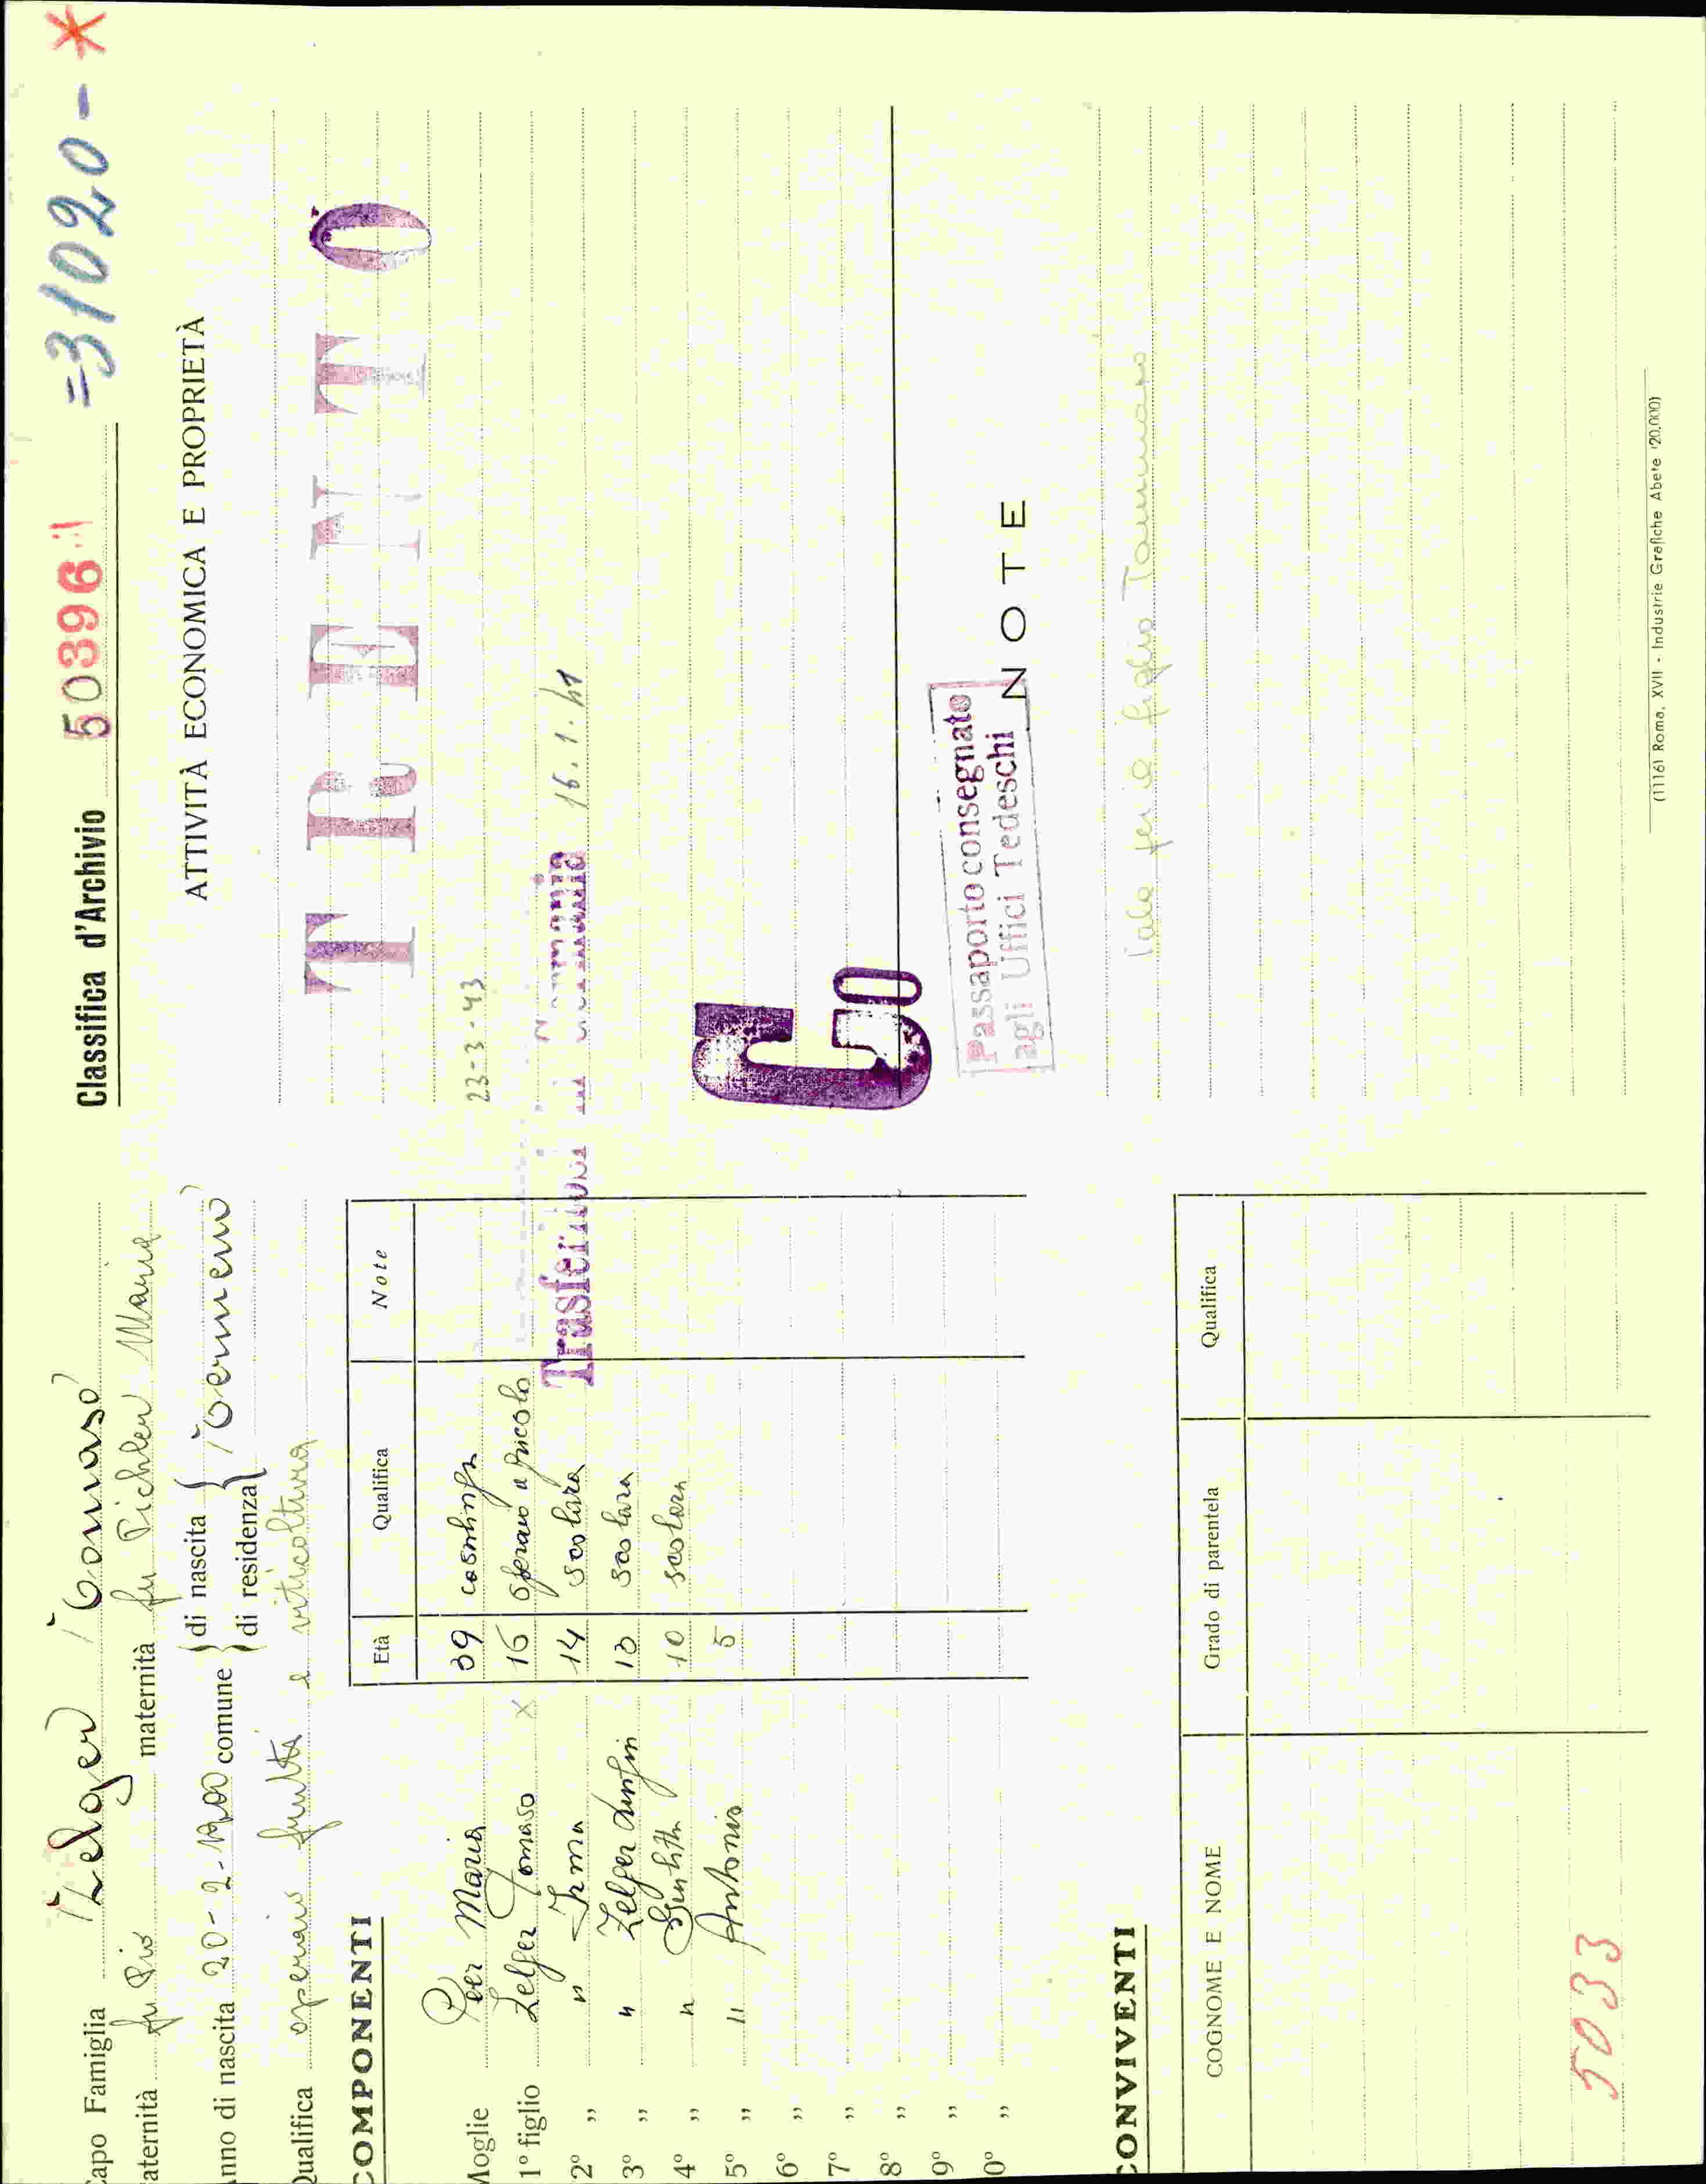 Capo Famiglia Zelger Tomaso
aternità fu Pio maternità fu Pichler Maria
nno di nascita 20-2-1900 comune di nascita Termeno
di residenza
Qualifica operaio frutti e viticoltura
COMPONENTI
Età Qualifica Note
Moglie Peer Maria 39 casalinga
1° figlio Zelger Tomaso x 16 operaio agricolo
2° „ " Irma 14 scolara
3° „ " Zelger 13 scolara
4° „ " 10 scolara
5° „ " Antonio 5
6° „
7° „
8° „
9° „
0° „
CONVIVENTI
COGNOME E NOME Grado di parentela Qualifica
5033
Classifica d'Archivio 50396 =31020- *
ATTIVITÀ ECONOMICA E PROPRIETÀ
TRENTO
23-3-43
Trasferitosi in Germania 16.1.41
G0
Passaporto consegnato
agli Uffici Tedeschi
NOTE
figlio Tommaso
(11116) Roma, XVII - Industrie Grafiche Abete (20,000)